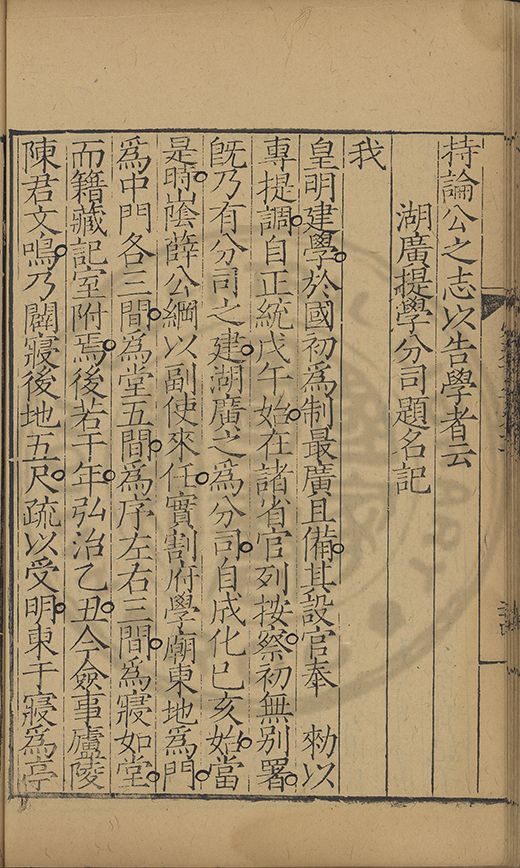 持論公之志以告學者云
湖廣提學分司題名記
我
皇明建學於國初爲制最廣且備其設官奉勑以
專提調自正統戊午始在諸省官列按察初無別署
旣乃有分司之建湖廣之爲分司自成化己亥始當
是時山陰薛公綱以副使來任實割府學廟東地爲門
爲中門各三間爲堂五間爲序左右三間爲寢如堂
而籍藏記室附焉後若干年弘治乙丑今僉事廬陵
陳君文鳴乃闢寢後地五尺疏以受明東于寢爲亭